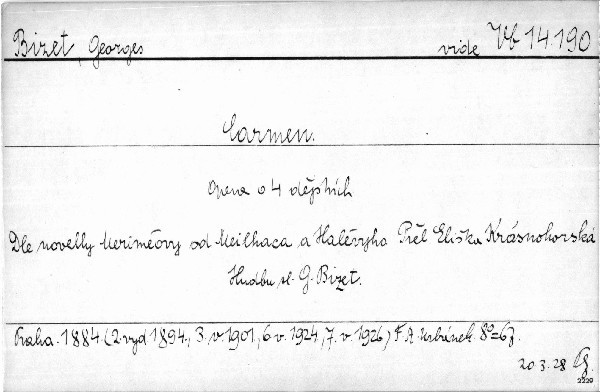 Bizet, Georges vide Vf 14.190
Carmen.
Opera o 4 dějstvích
Dle novelly Meriméovy od Meilhaca a Halévyho Přel Eliška Krásnohorská
Hudbu sl. G. Bizet.
Praha. 1884 (2. vyd 1894, 3. v. 1901, 6 v. 1924, 7. v. 1926) F. A. Urbánek. 8º = 67.
20 3. 28
2229